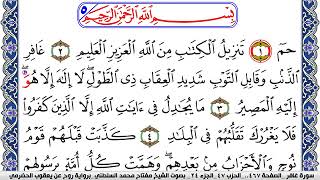 بِسْمِ ٱللَّهِ ٱلرَّحْمَٰنِ ٱلرَّحِيمِ
حمٓ ١ تَنزِيلُ ٱلْكِتَٰبِ مِنَ ٱللَّهِ ٱلْعَزِيزِ ٱلْعَلِيمِ ٢ غَافِرِ
ٱلذَّنۢبِ وَقَابِلِ ٱلتَّوْبِ شَدِيدِ ٱلْعِقَابِ ذِي ٱلطَّوْلِ لَآ إِلَٰهَ إِلَّا هُوَ
إِلَيْهِ ٱلْمَصِيرُ ٣ مَا يُجَٰدِلُ فِيٓ ءَايَٰتِ ٱللَّهِ إِلَّا ٱلَّذِينَ كَفَرُوا۟
فَلَا يَغْرُرْكَ تَقَلُّبُهُمْ فِي ٱلْبِلَٰدِ ٤ كَذَّبَتْ قَبْلَهُمْ قَوْمُ
نُوحٍ وَٱلْأَحْزَابُ مِنۢ بَعْدِهِمْ وَهَمَّتْ كُلُّ أُمَّةٍۭ بِرَسُولِهِمْ
سورة غافر الصفحة ٤٦٧ الحزب ٤٧ الجزء ٢٤ بصوت الشيخ مفتاح محمد السلطني برواية روح عن يعقوب الحضرمي